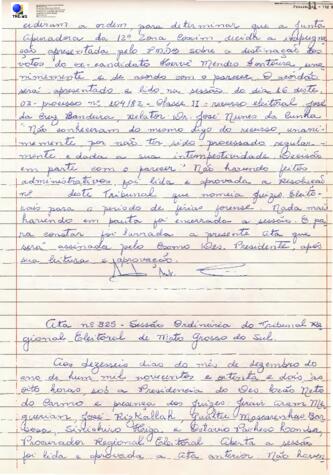 cederam a ordem para determinar que a Junta
Apuradora da 12ª Zona Coxim, decida a impugna-
ção apresentada pelo PMDB sobre a destinação dos
votos do ex-candidato Hervé Mendes Fontoura, una-
nimemente e de acordo com o parecer. O acórdão
será apresentado e lido na sessão do dia 16 deste
03- processo nº 104/82 - Classe II: recurso eleitoral José
da Cruz Bandeira, relator Dr. José Nunes da Cunha
"Não conheceram do mesmo digo do recurso, unani-
memente por não ter sido processado regular-
mente e dada a sua intempestividade. Decisão
em parte com o parecer". Não havendo feitos
administrativos foi lida e aprovada a Resolução
nº deste Tribunal que nomeia Juizes Eleito-
rais para o período de férias forense. Nada mais
havendo em pauta foi encerrada a sessão. E pa
ra constar foi lavrada a presente Ata que
será assinada pelo Exmo Des. Presidente após
sua leitura e aprovação.
Ata nº 325 - Sessão Ordinária do Tribunal Re
gional Eleitoral de Mato Grosso do Sul.
Aos dezesseis dias do mês de dezembro do
ano de hum mil novecentos e oitenta e dois às
oito horas, sob a Presidência do Des Leão Neto
do Carmo e presença dos Juizes Jesus
José Rizkallah, Paulo Mascarenhas Bar
bosa, e Octavio Pacheco Lomba,
Procurador Regional Eleitoral. Aberta a sessão
foi lida e aprovada a Ata anterior. Não haven